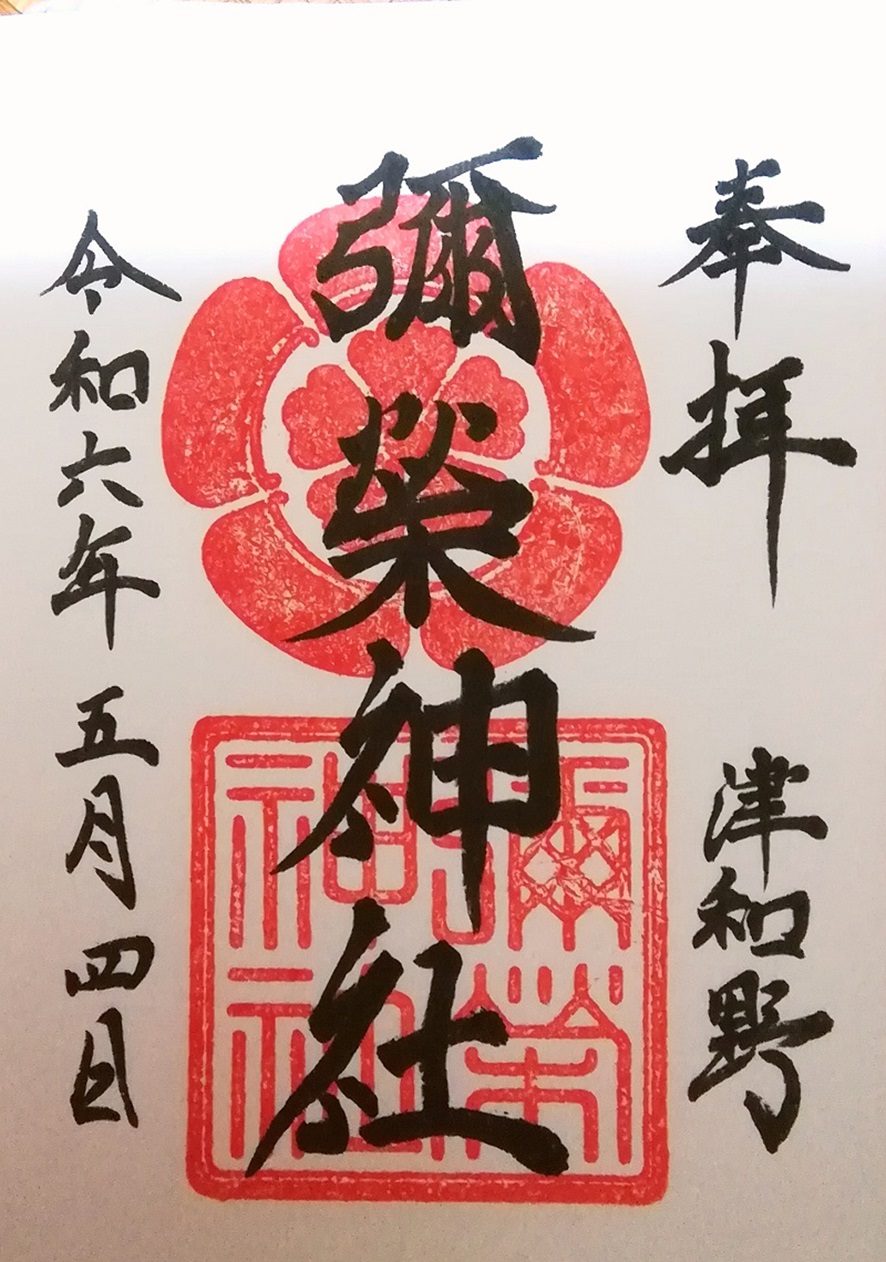 奉拝
津和野
彌榮神社
令和六年 五月四日
彌榮
神社